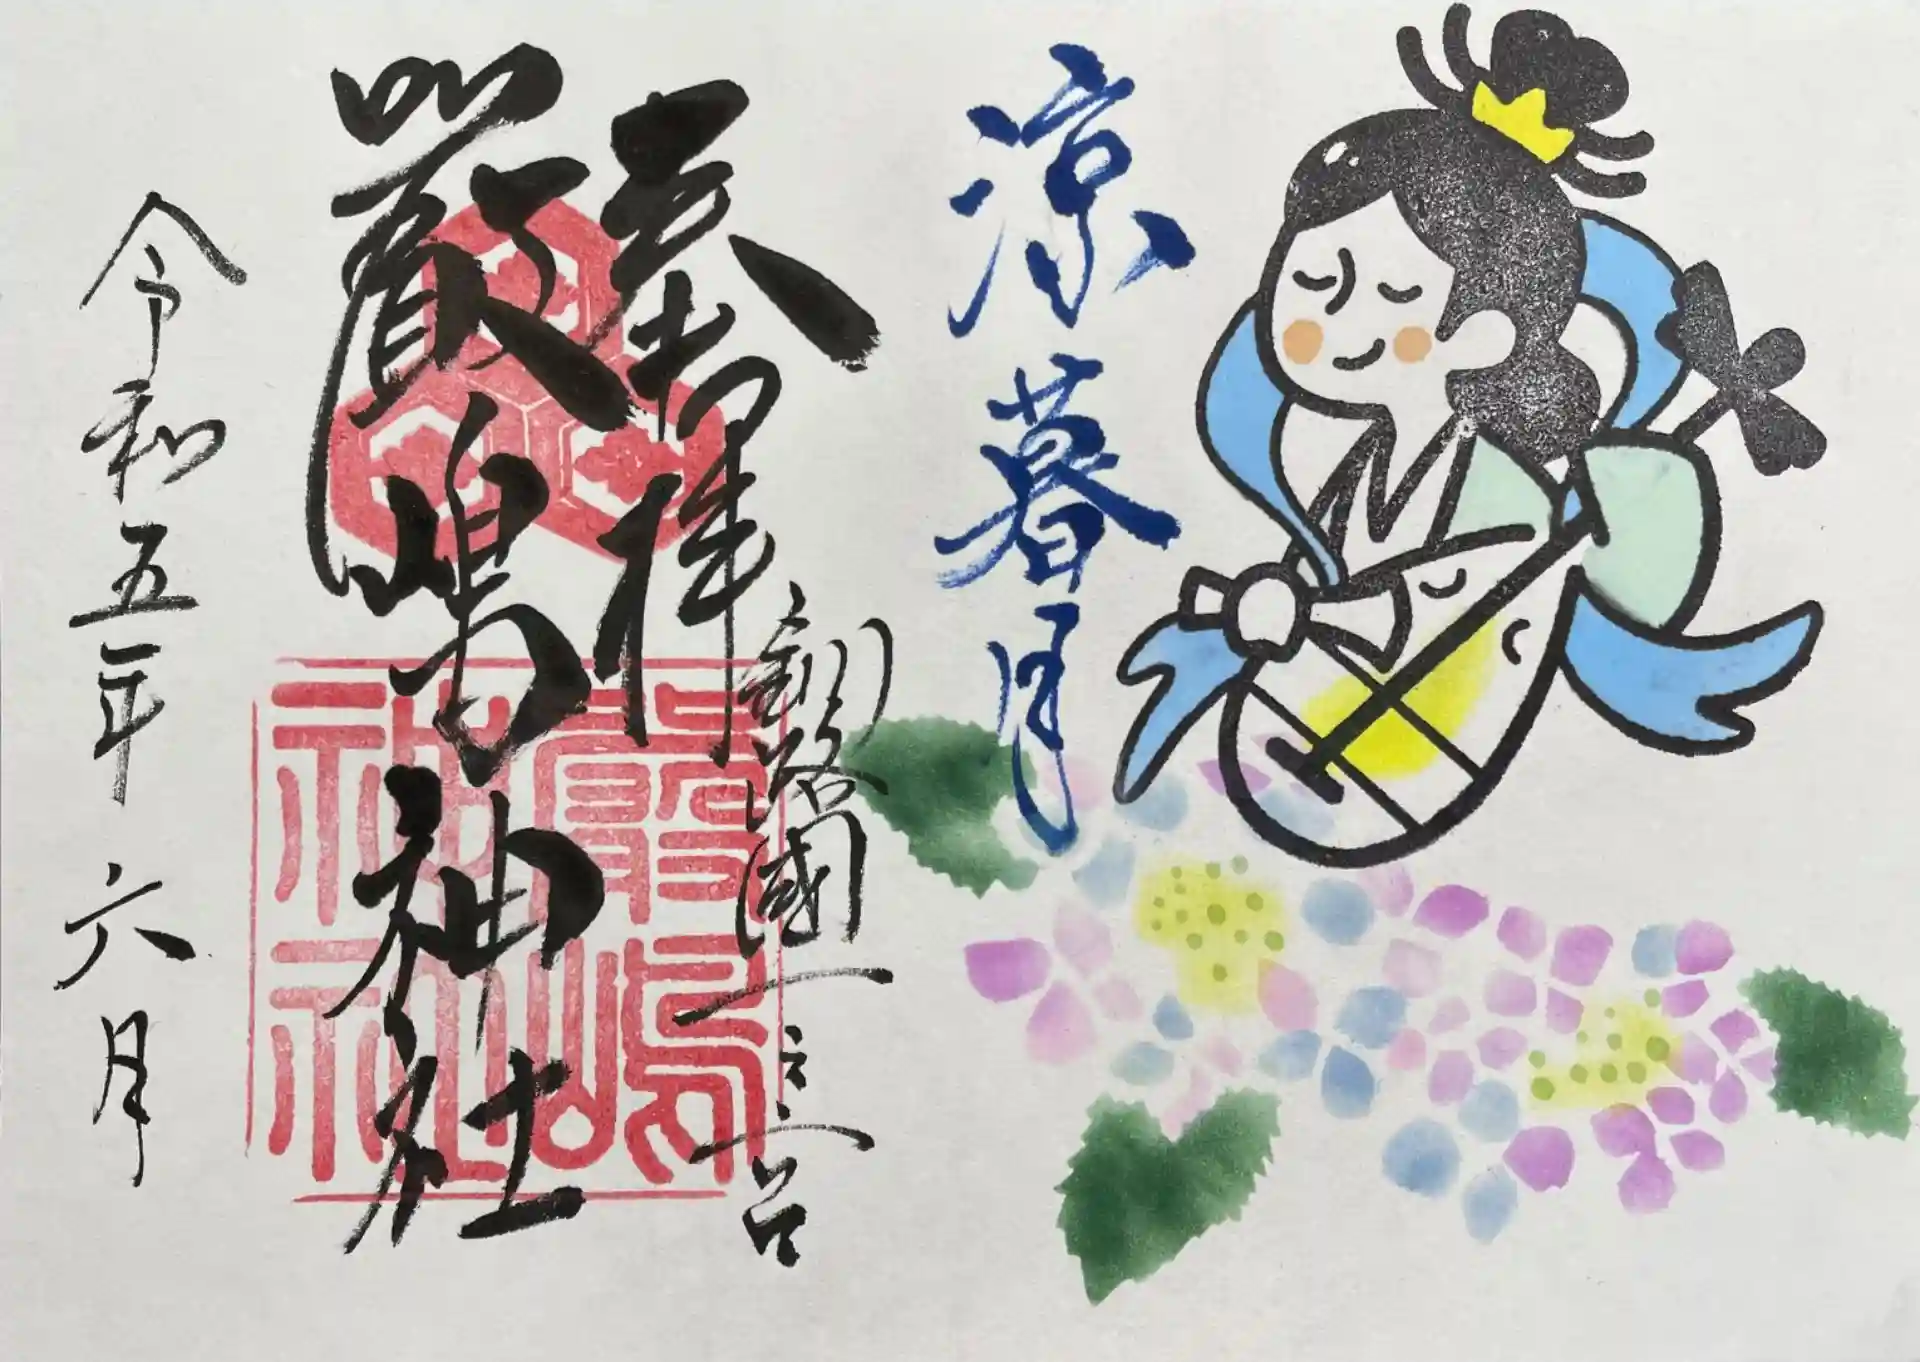 涼暮月
奉拝
釧路國一之宮
厳嶋神社
嚴嶋
神社
令和五年六月